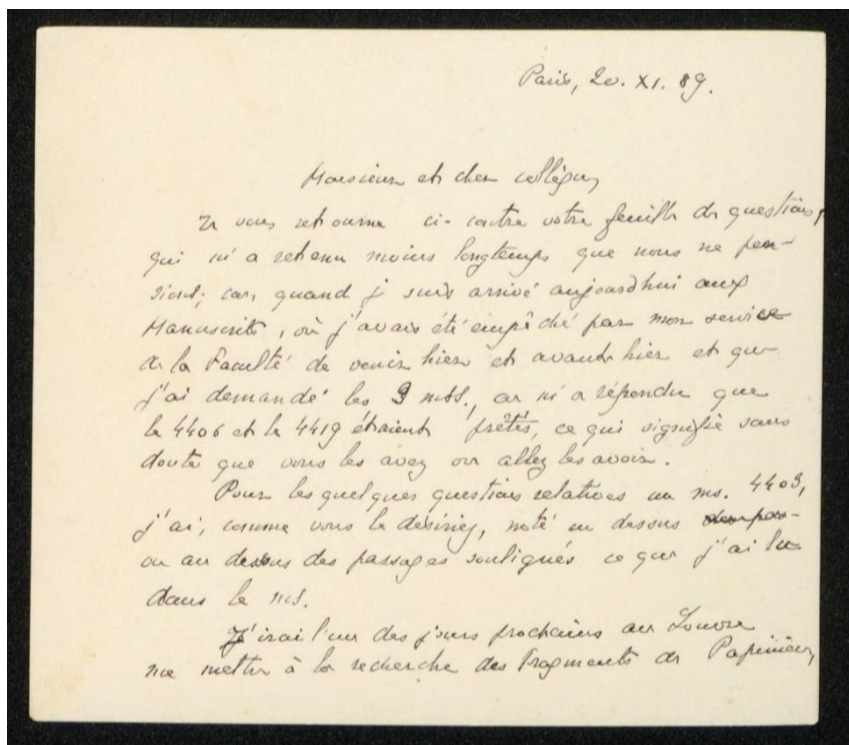 Paris, 20. XI. 89.
Monsieur et cher collègue,
Je vous retourne ci-contre votre feuille de questions,
qui m'a retenu moins longtemps que nous ne pen-
sions; car, quand je suis arrivé aujourd'hui aux
Manuscrits, où j'avais été empêché par mon service
de la Faculté de venir hier et avant hier et que
j'ai demandé les 3 mss., on m'a répondu que
le 4406 et le 4419 étaient prêtés, ce qui signifie sans
doute que vous les avez ou allez les avoir.
Pour les quelques questions relatives au ms. 4403,
j'ai, comme vous le désiriez, noté en dessus
ou au dessus des passages soulignés ce que j'ai lu
dans le ms.
J'irai l'un des jours prochains au Louvre
me mettre à la recherche des Fragments de Papinien,